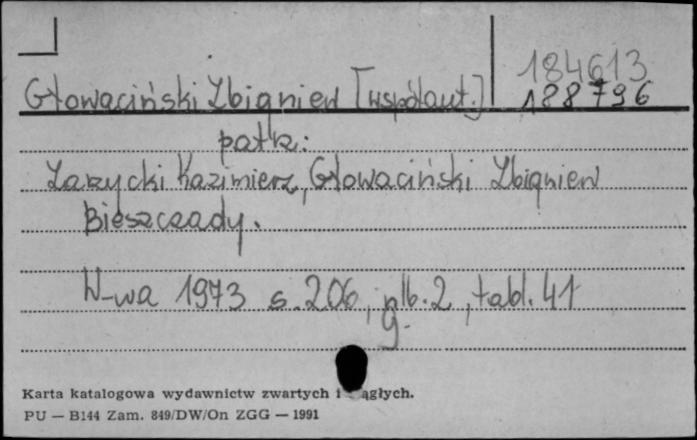 184613
Głowaciński Zbigniew [współaut.] 188796
patrz:
Zarzycki Kazimierz, Głowaciński Zbigniew
Bieszczady.
W-wa 1973 s. 206, nlb. 2, tabl. 41
g.
Karta katalogowa wydawnictw zwartych i ągłych.
PU — B144 Zam. 849/DW/On ZGG — 1991